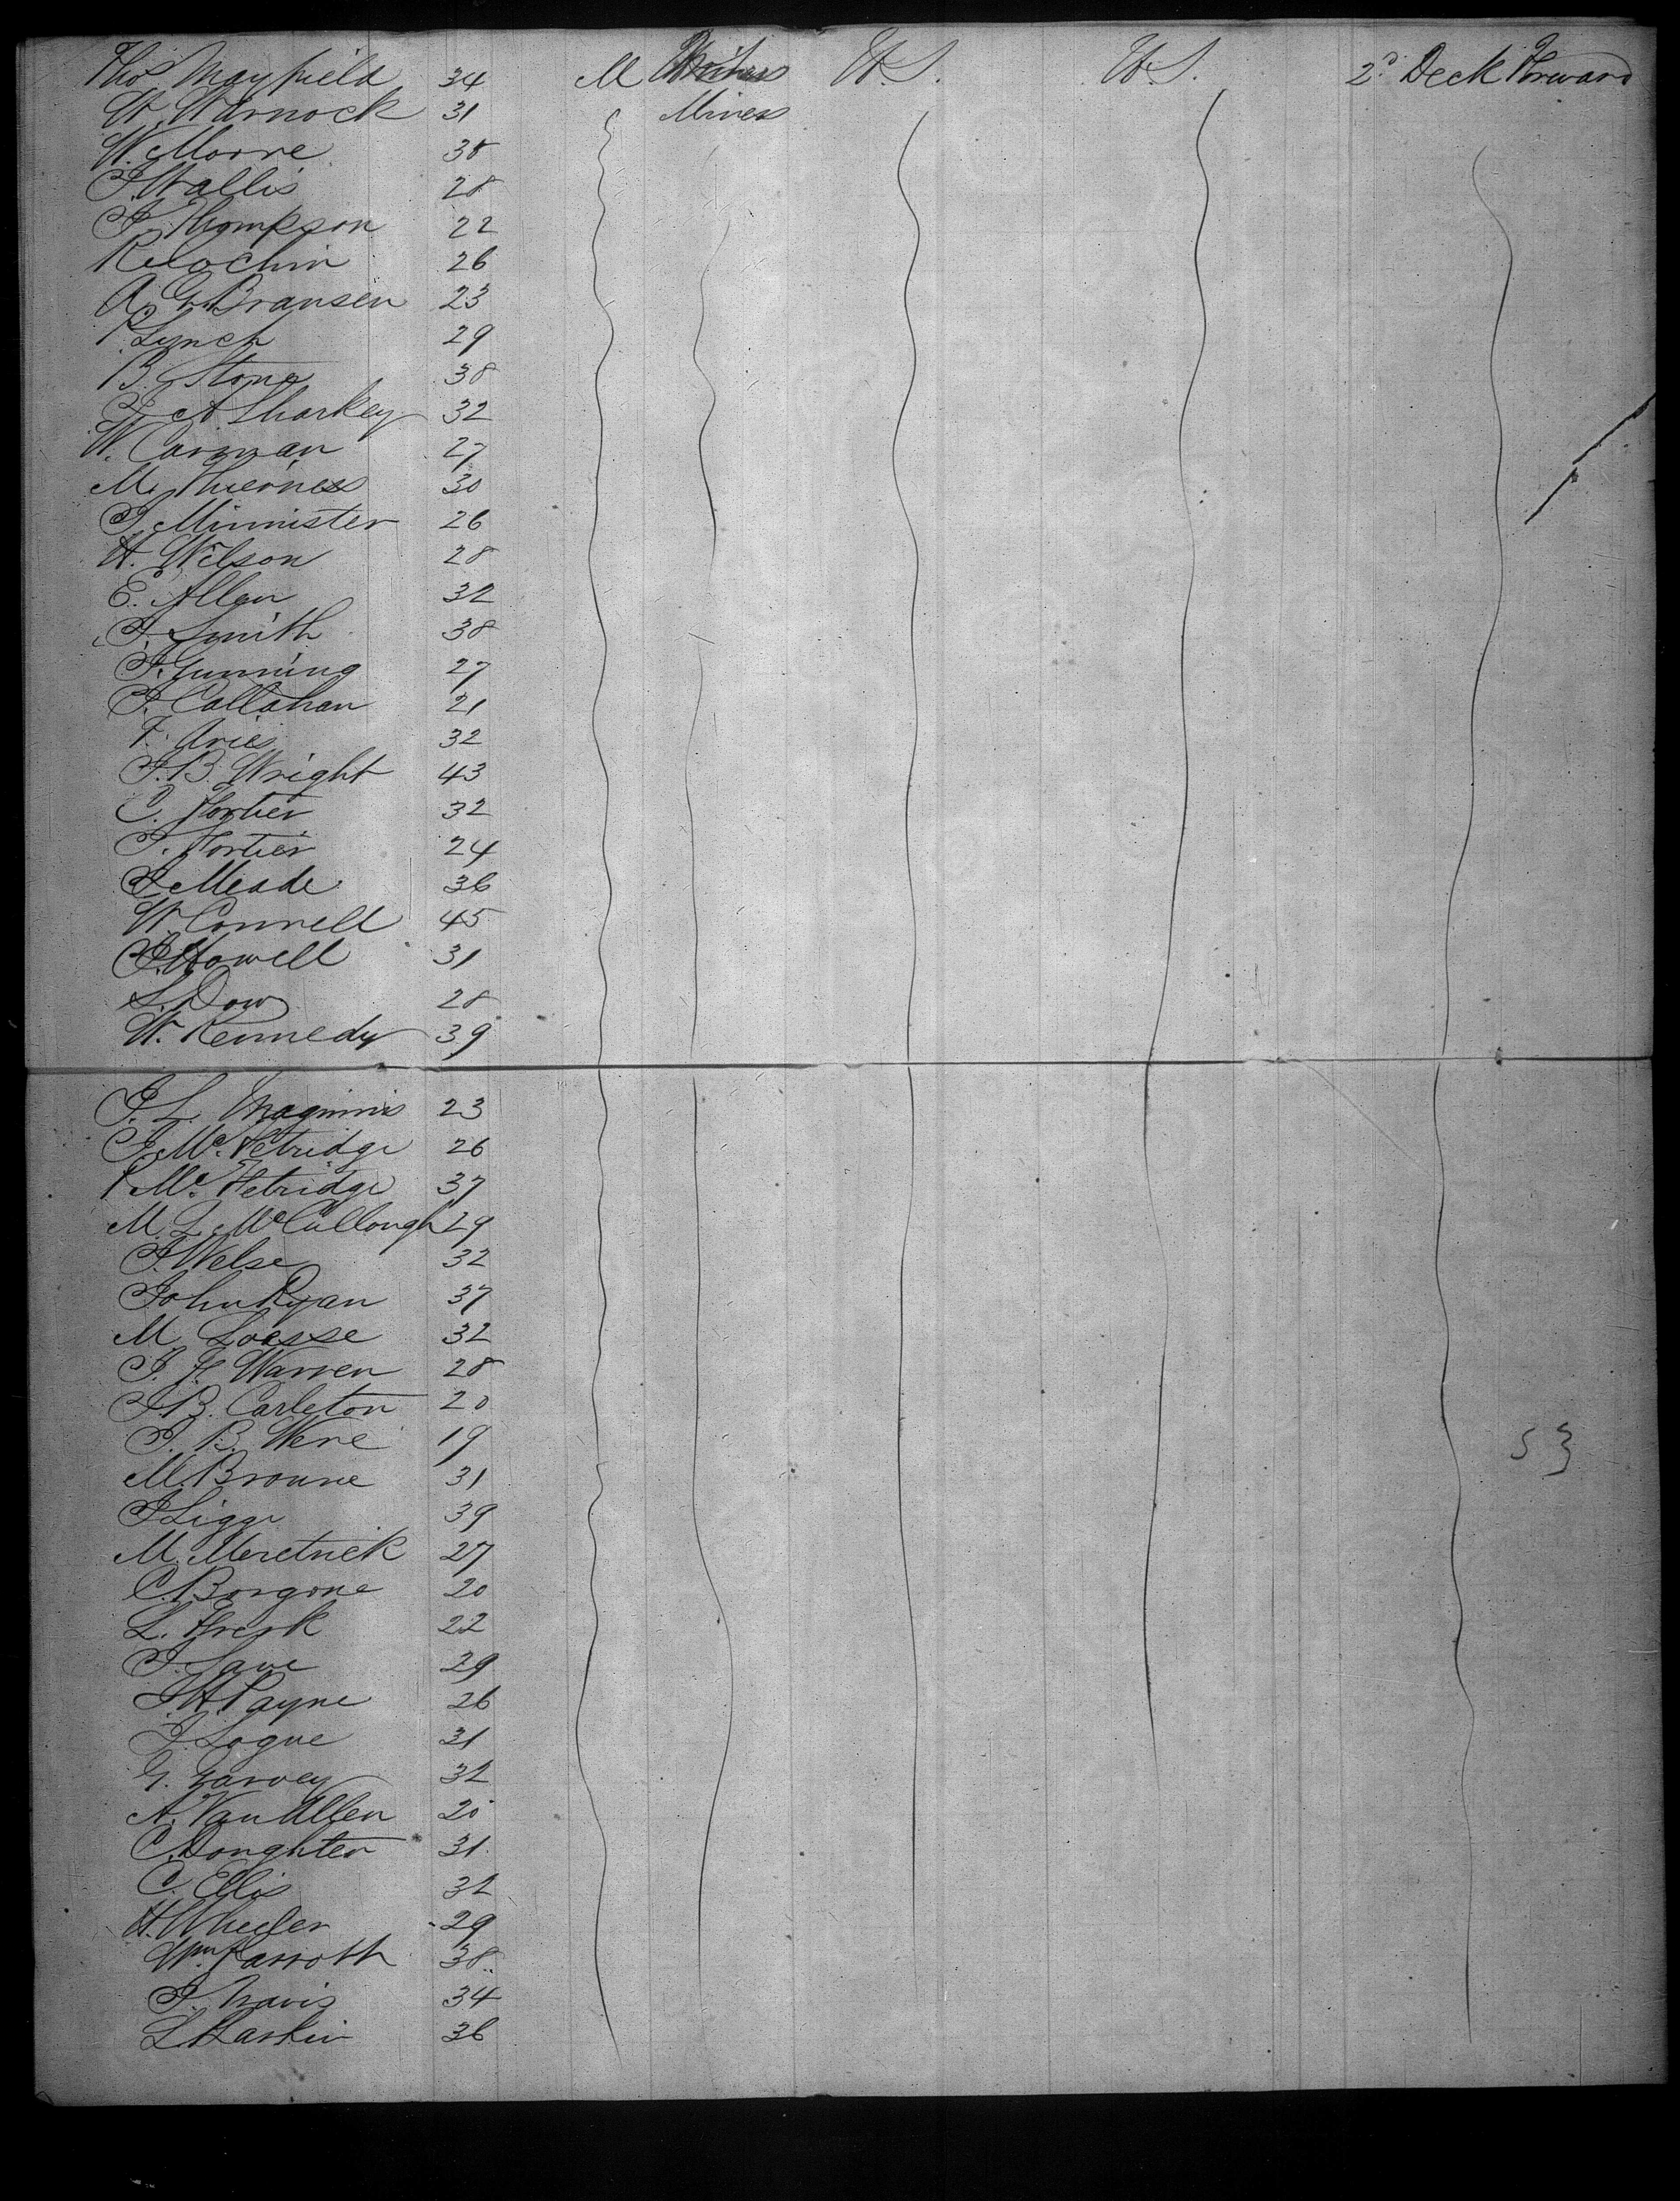 Thos Mayfield 34 M U.S. U.S. 2d Deck Forward
W. Warnock 31 Miner
W. Moore 38
J. Wallis 28
J. Thompson 22
26
A. G. Bransen 23
P. Lynch 29
B. Stone 38
A. Sharkey 32
W. Carman 27
M. 30
J. Minnister 26
H. Wilson 28
E. Allen 32
J. Smith 38
J. Gunning 27
J. Callahan 21
F. Aries 32
J. B. Wright 43
C. Fortier 32
J. Fortier 24
J. Meade 36
W. Connell 45
J. Howell 31
S. Dow 28
W. Kennedy 39
J. L. Maginnis 23
J. Mc. Fetridge 26
P. Mc. Fetridge 37
M. L. McCullough 29
J. Welse 32
John Ryan 37
M. Loesse 32
J. F. Warren 28
J. B. Carleton 20
J. B. Were 19
M. Browne 31
53
J. Ligge 39
M. Meretrick 27
C. Borgone 20
L. Fresk 22
J. Lave 29
J. H. Payne 26
J. Logue 31
G. Garvey 32
A. Van Allen 20
C. Doughter 31
C. Ellis 32
H. Wheeler 29
Wm. Parroth 38
J. Travis 34
L. Larkin 36